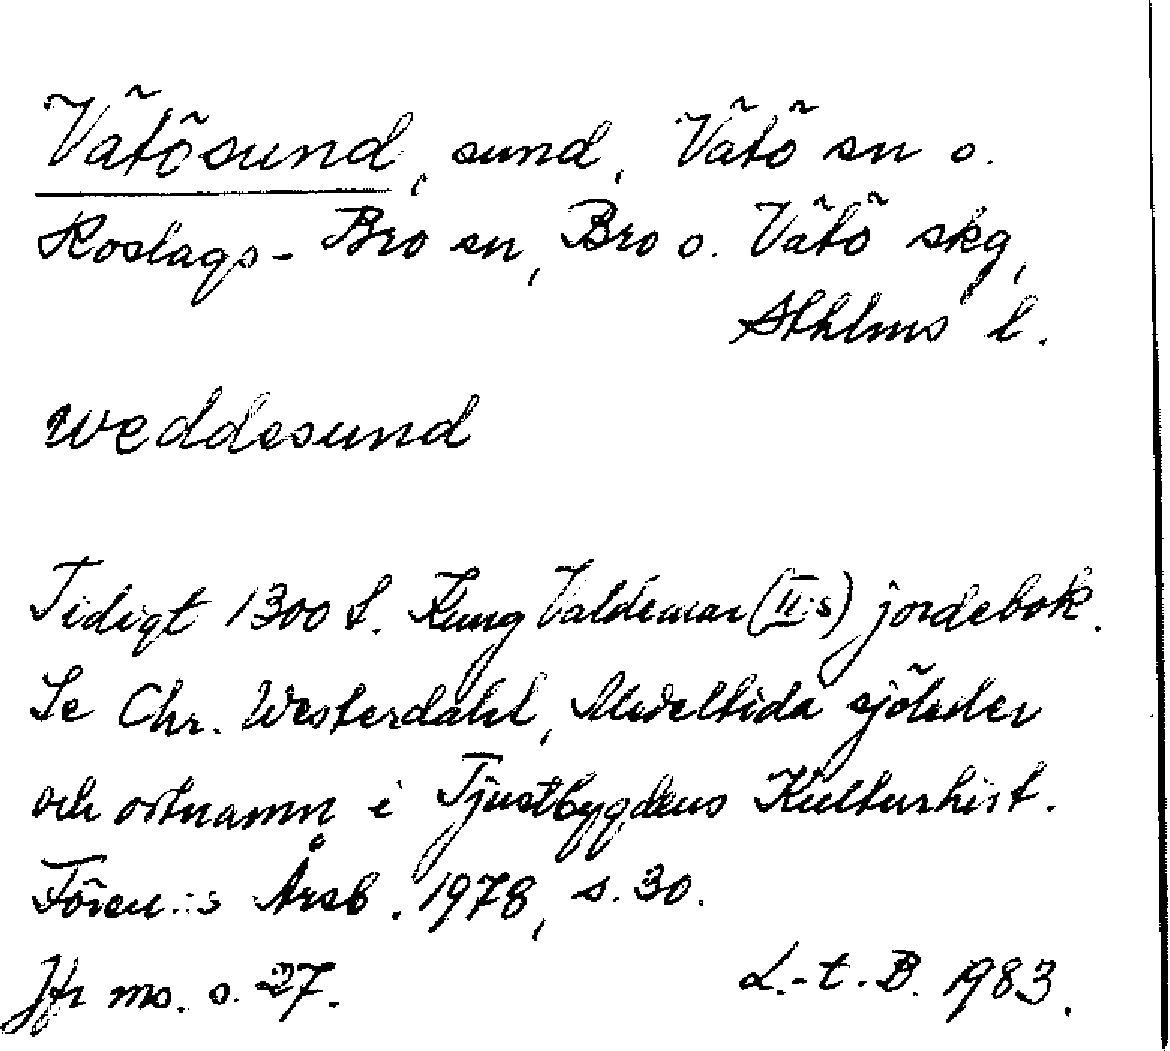 Vätösund, sund, Vätö sn o.
Roslags-Bro sn, Bro o. Vätö skg,
Sthlms l.
weddesund
Tidigt 1300 t. Kung Valdemar (II:s) jordebok.
Se Chr. Westerdahl, Medeltida sjöleder
och ortnamn i Tjustbygdens Kulturhist.
Fören:s Årsb. 1978, s. 30.
Jfr ms. s. 27. L.-t. B. 1983.